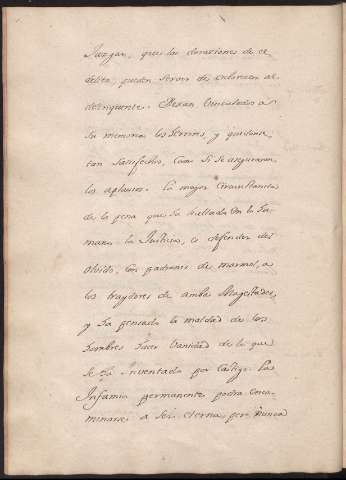 Juzgan, que las duraciones de el
delito, pueden servir de
delinquente. Dexan vinculados a
su memoria los herrores, y quedan
tan satisfechos, como si se aseguraran
los aplausos. La mayor circunstancia
de la pena que ha dictado en lo hu-
mano la Justicia, es defender del
olvido, con padrones de marmol, a
los traydores de ambas Magestades,
y ha pensado la maldad de los
hombres hacer vanidad de lo que
se ha inventado por castigo. La
Infamia permanente podra enca-
minarse a ser eterna, pero nunca